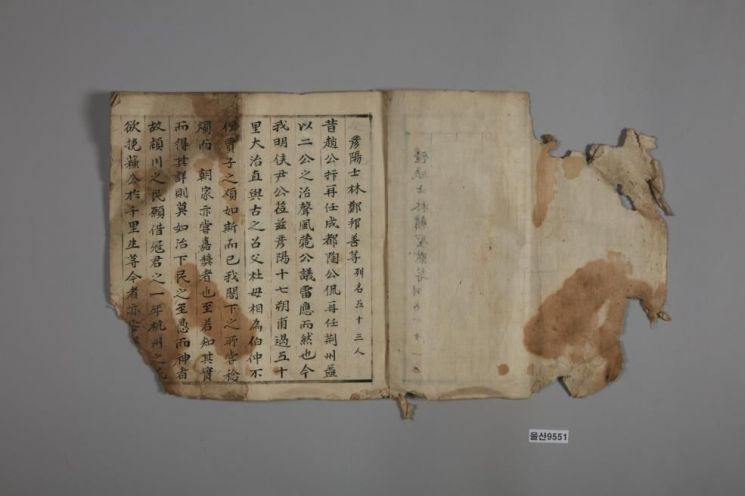 彦陽士林鄭邦善等列名五十三人
昔趙公抃再任成都陶公侃再任荊州益
以二公之治聲風 公議雷應而然也今
我明侯尹公莅茲彦陽十七朔甫過五十
里大治直與古之召父杜母相為伯仲不
寶子之頌如斯而已我閤下之所
而 朝家亦嘗嘉獎者也至若知其實
而得其詳則莫如治下民之至愚而神者
故潁川之民願借寇君之一年杭州之
欲挽蘇公於千里生等今者亦
士林 等列
울산9551